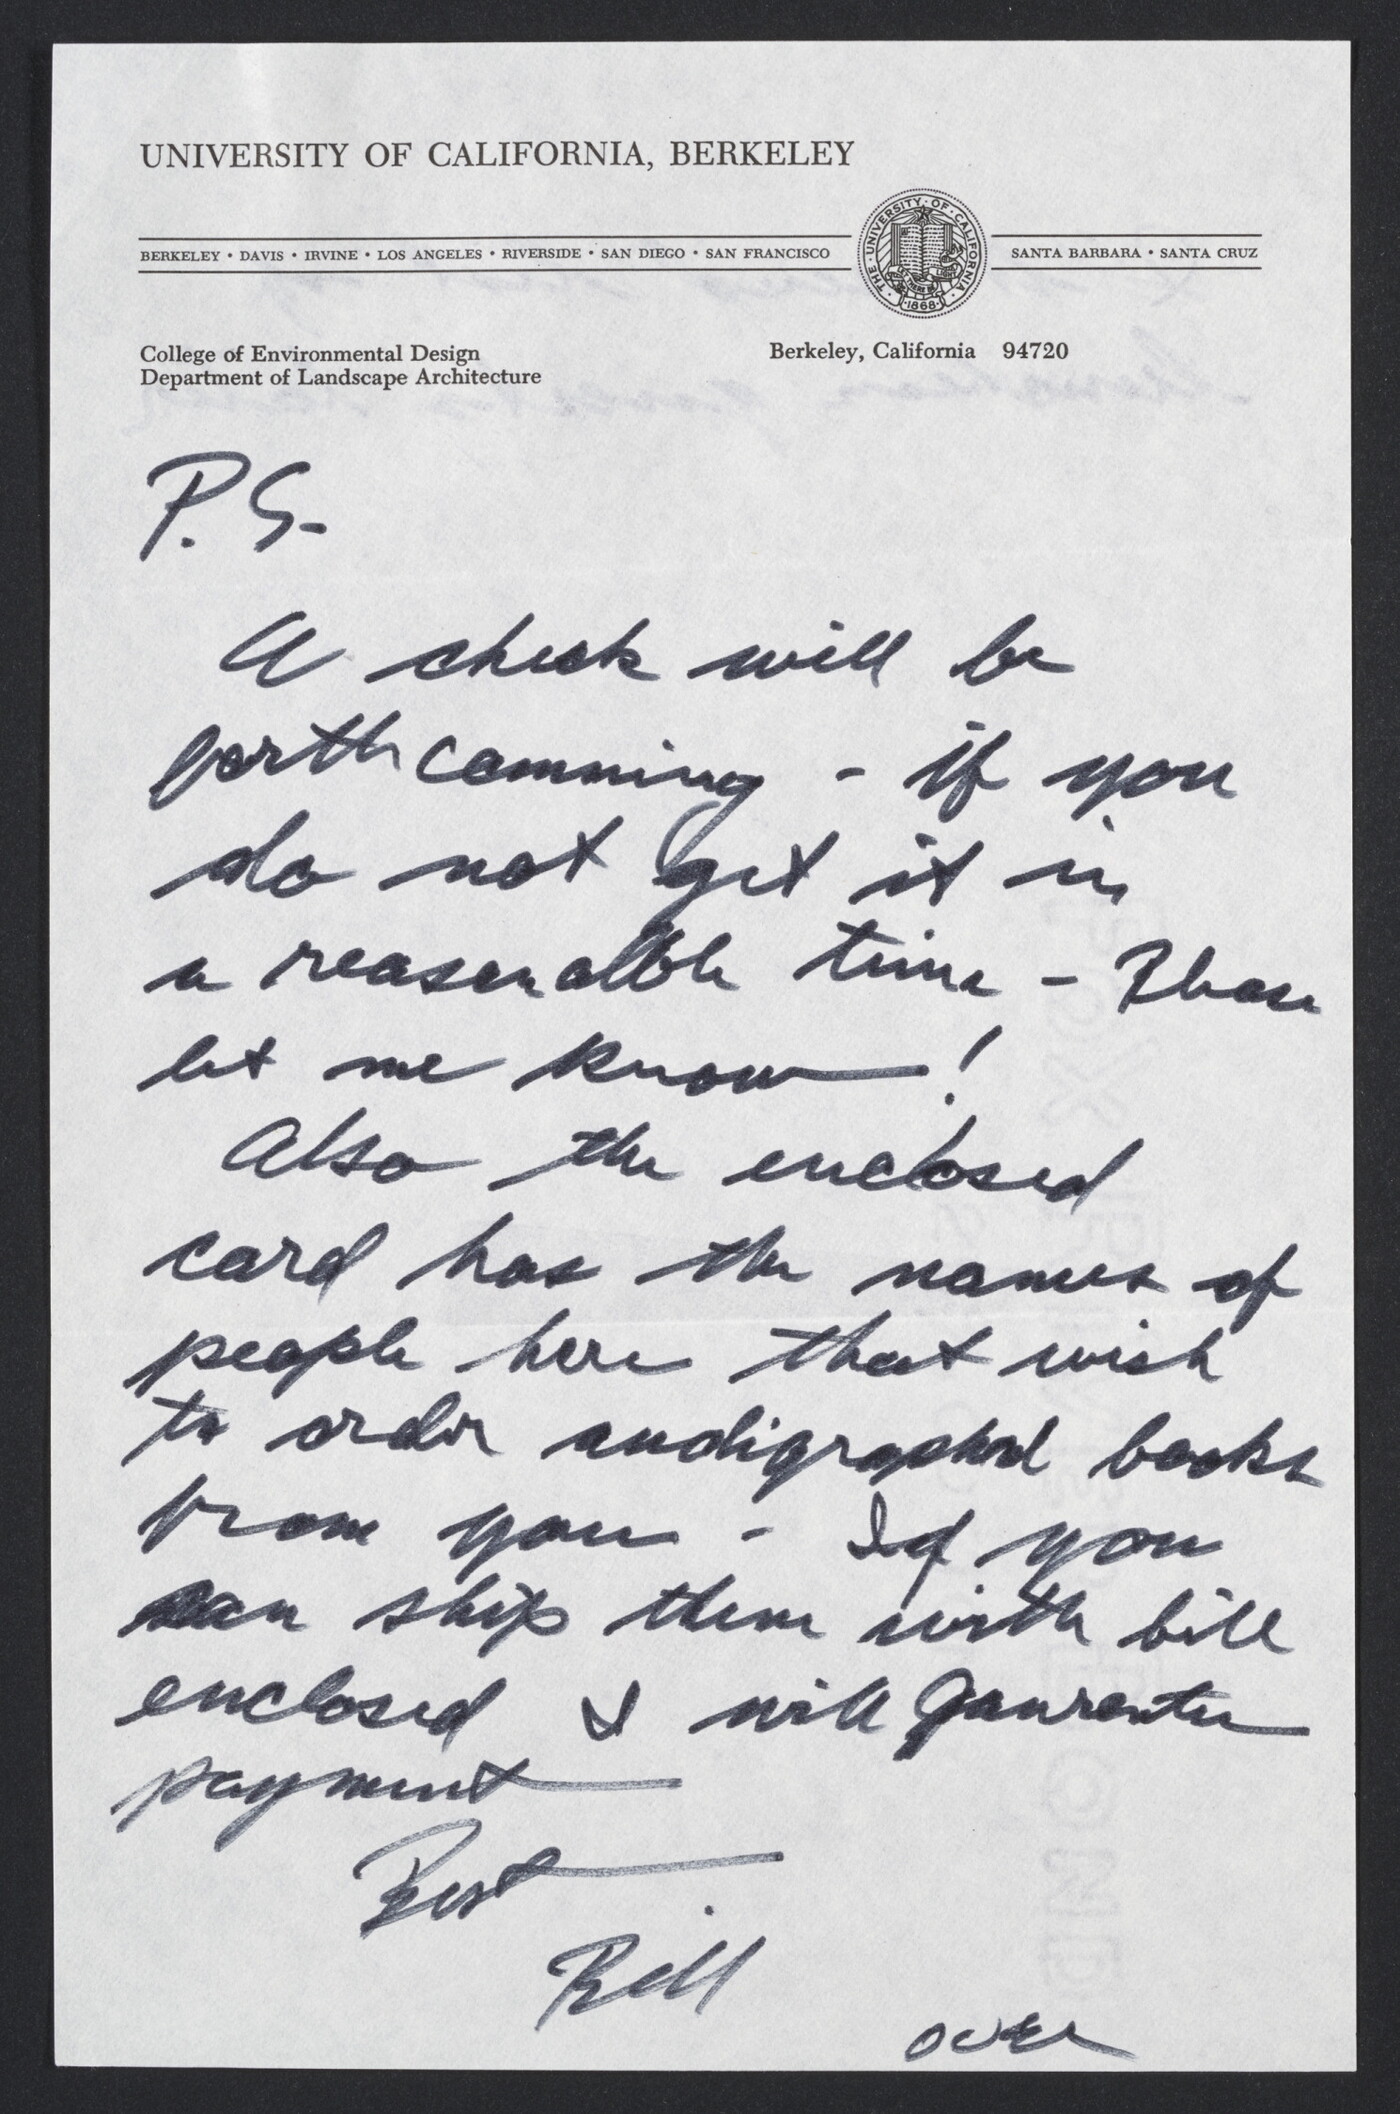 UNIVERSITY OF CALIFORNIA, BERKELEY
BERKELEY • DAVIS • IRVINE • LOS ANGELES • RIVERSIDE • SAN DIEGO • SAN FRANCISCO
SANTA BARBARA • SANTA CRUZ
THE • UNIVERSITY • OF • CALIFORNIA
LET THERE BE LIGHT
• 1868 •
College of Environmental Design
Department of Landscape Architecture
Berkeley, California 94720
P.S.
A check will be
forthcomming - if you
do not get it in
a reasonable time - Please
let me know!
Also the enclosed
card has the names of
people here that wish
to order audigraphed books
from you - If you
can ship them with bill
enclosed I will Gaurentee
payment
Best
Bill
over